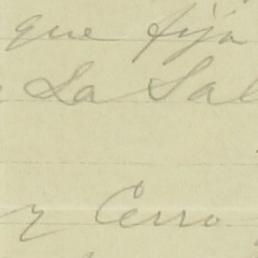 que fija
La Sal
y Cerro